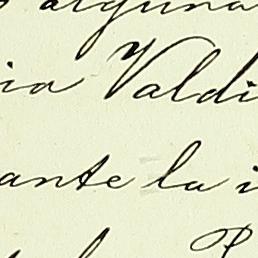 alguna
ia Valdi
ante la i